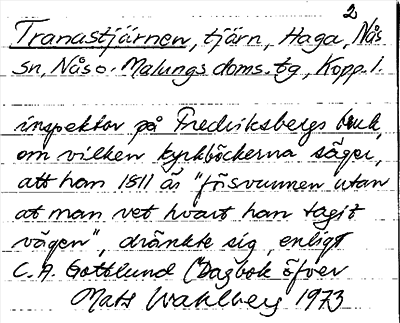 2
Tranastjärnen, tjärn, Haga, Nås
sn, Nås o. Malungs doms.tg, Kopp. l.
inspektor på Fredriksbergs bruk,
om vilken kyrkböckerna säger,
att han 1811 är "försvunnen utan
at man vet hvart han tagit
vägen", dränkte sig, enligt
C. A. Gottlund (Dagbok öfver
Mats Wahlberg 1973